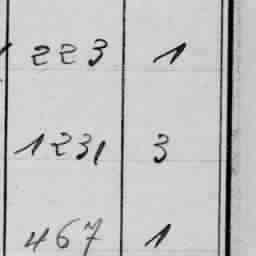 223 1
1231 3
467 1